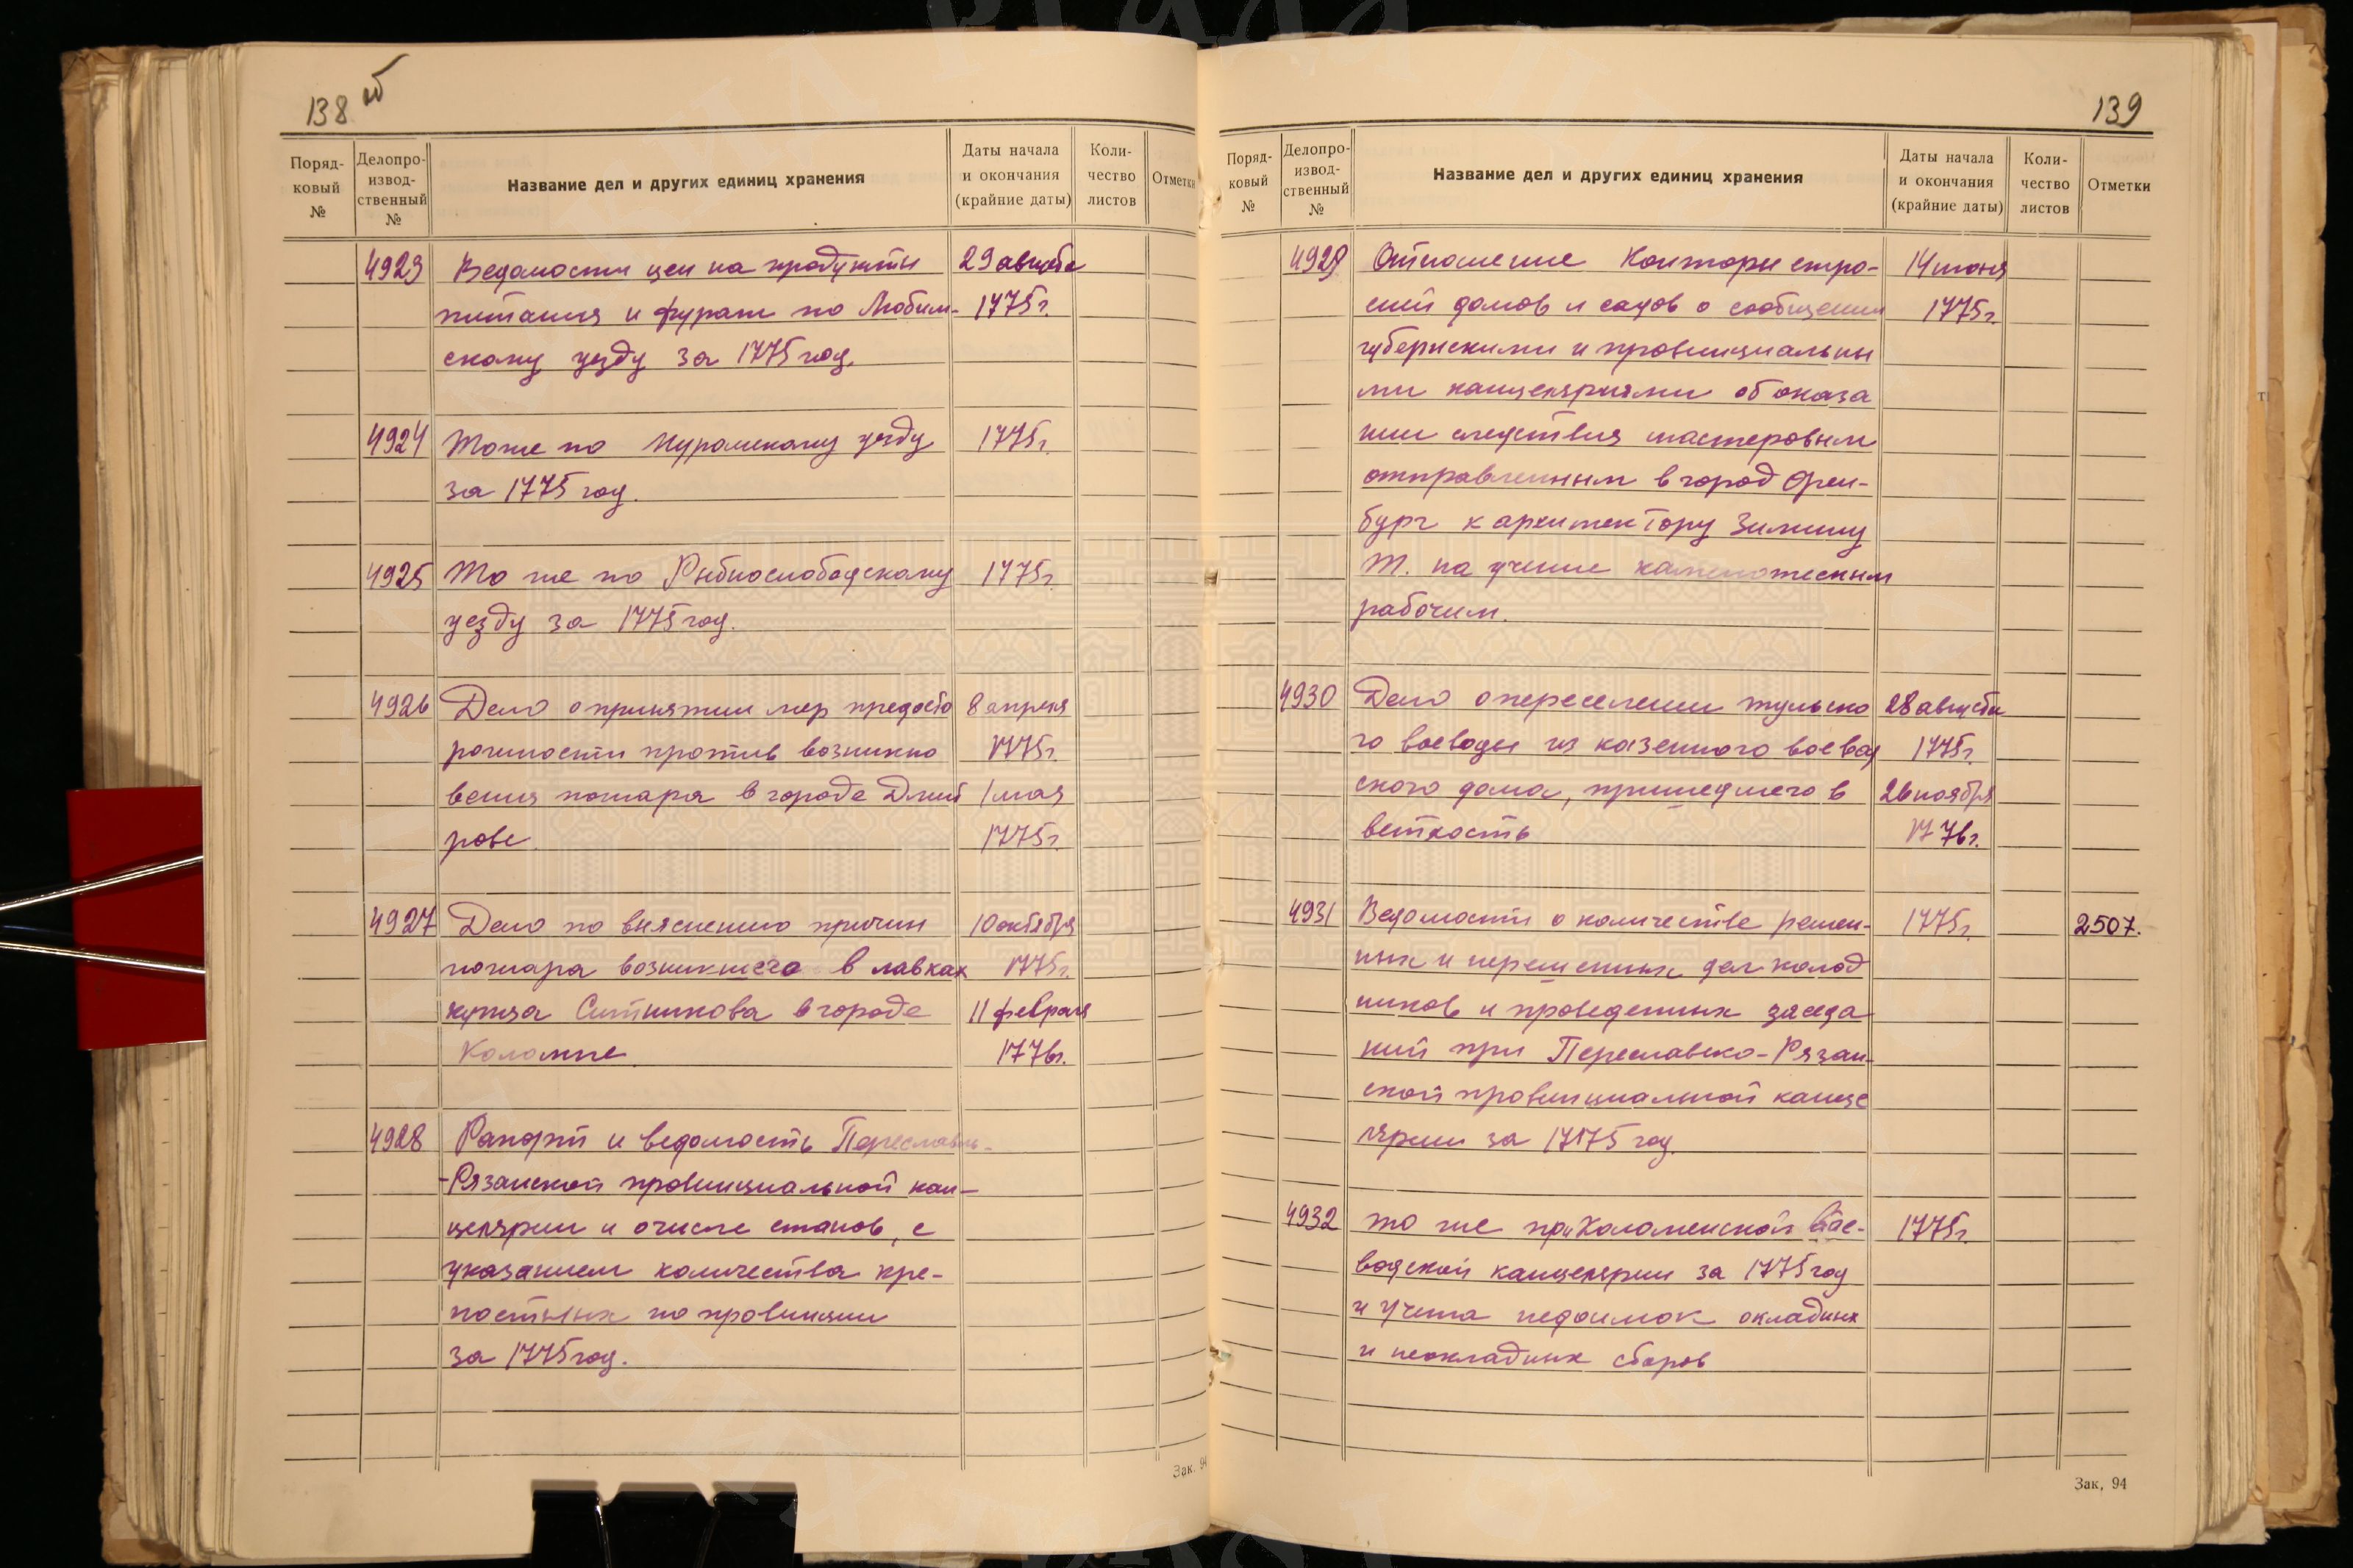 138 об
Поряд-
ковый
№
Делопро-
извод-
ственный
№
Название дел и других единиц хранения
Даты начала
и окончания
(крайние даты)
Коли-
чество
листов
Отметки
4923 Ведомости цен на продукты 29 августа
питания и фураж по Любим- 1775 г.
скому уезду за 1775 год.
4924 Тоже по Муромскому уезду 1775 г.
за 1775 год.
4925 То же по Рыбнослободскому 1775 г.
уезду за 1775 год.
4926 Дело о принятии мер предосто 8 апреля
рожности против возникно 1775 г.
вения пожара в городе Дмит 1 мая
рове. 1775 г.
4927 Дело по выяснению причин 10 октября
пожара возникшего в лавках 1775 г.
купца Ситникова в городе 11 февраля
Коломне. 1776 г.
4928 Рапорт и ведомость Переславль-
-Рязанской провинциальной кан-
целярии и о числе станов, с
указанием количества кре-
постных по провинции
за 1775 год.
Зак. 94
139
Поряд-
ковый
№
Делопро-
извод-
ственный
№
Название дел и других единиц хранения
Даты начала
и окончания
(крайние даты)
Коли-
чество
листов
Отметки
4929 Отношение Конторы стро- 14 июня
ений домов и садов о сообщении 1775 г.
губернскими и провинциальны
ми канцеляриями об оказа
нии следствия мастеровым
отправленным в город Орен-
бург к архитектору Зимину
Т. на учение каменотесным
рабочим.
4930 Дело о переселении тульско 28 августа
го воеводы из казенного воевод 1775 г.
ского дома, пришедшего в 26 ноября
ветхость 1776 г.
4931 Ведомости о количестве решен- 1775 г. 2507.
ных и нерешенных дел колод
ников и проведенных заседа
ний при Переславско-Рязан-
ской провинциальной канце
лярии за 1775 год.
4932 то же при Коломенской Вое- 1775 г.
водской канцелярии за 1775 год
и учета недоимок окладных
и неокладных сборов
Зак, 94